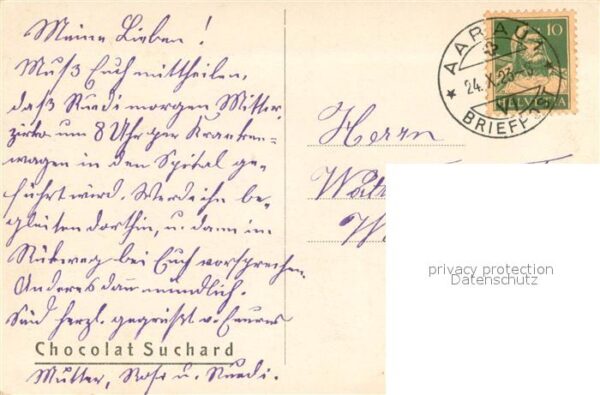 Meine Lieben!
Muß Euch mittheilen,
daß Ruedi morgen Mitter,
zirka um 8 Uhr per Kranken=
wagen in den Spital ge=
führt wird. Werde ihn be=
gleiten dorthin, u. dann im
Rückweg bei Euch vorsprechen.
Anderes dann mündlich.
Seid herzl. gegrüßt v. Eurer
Chocolat Suchard
Mutter, Rosa u. Ruedi.
10
AARAU 1
24.X.23
HELVETIA
BRIEFP
Herrn
W
privacy protection
Datenschutz